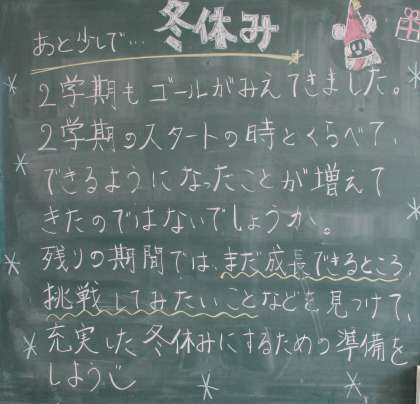 あと少しで… 冬休み
2学期もゴールがみえてきました。
2学期のスタートの時とくらべて、
できるようになったことが増えて
きたのではないでしょうか。
残りの期間では、まだ成長できるところ
挑戦してみたいことなどを見つけて、
充実した冬休みにするための準備を
しよう